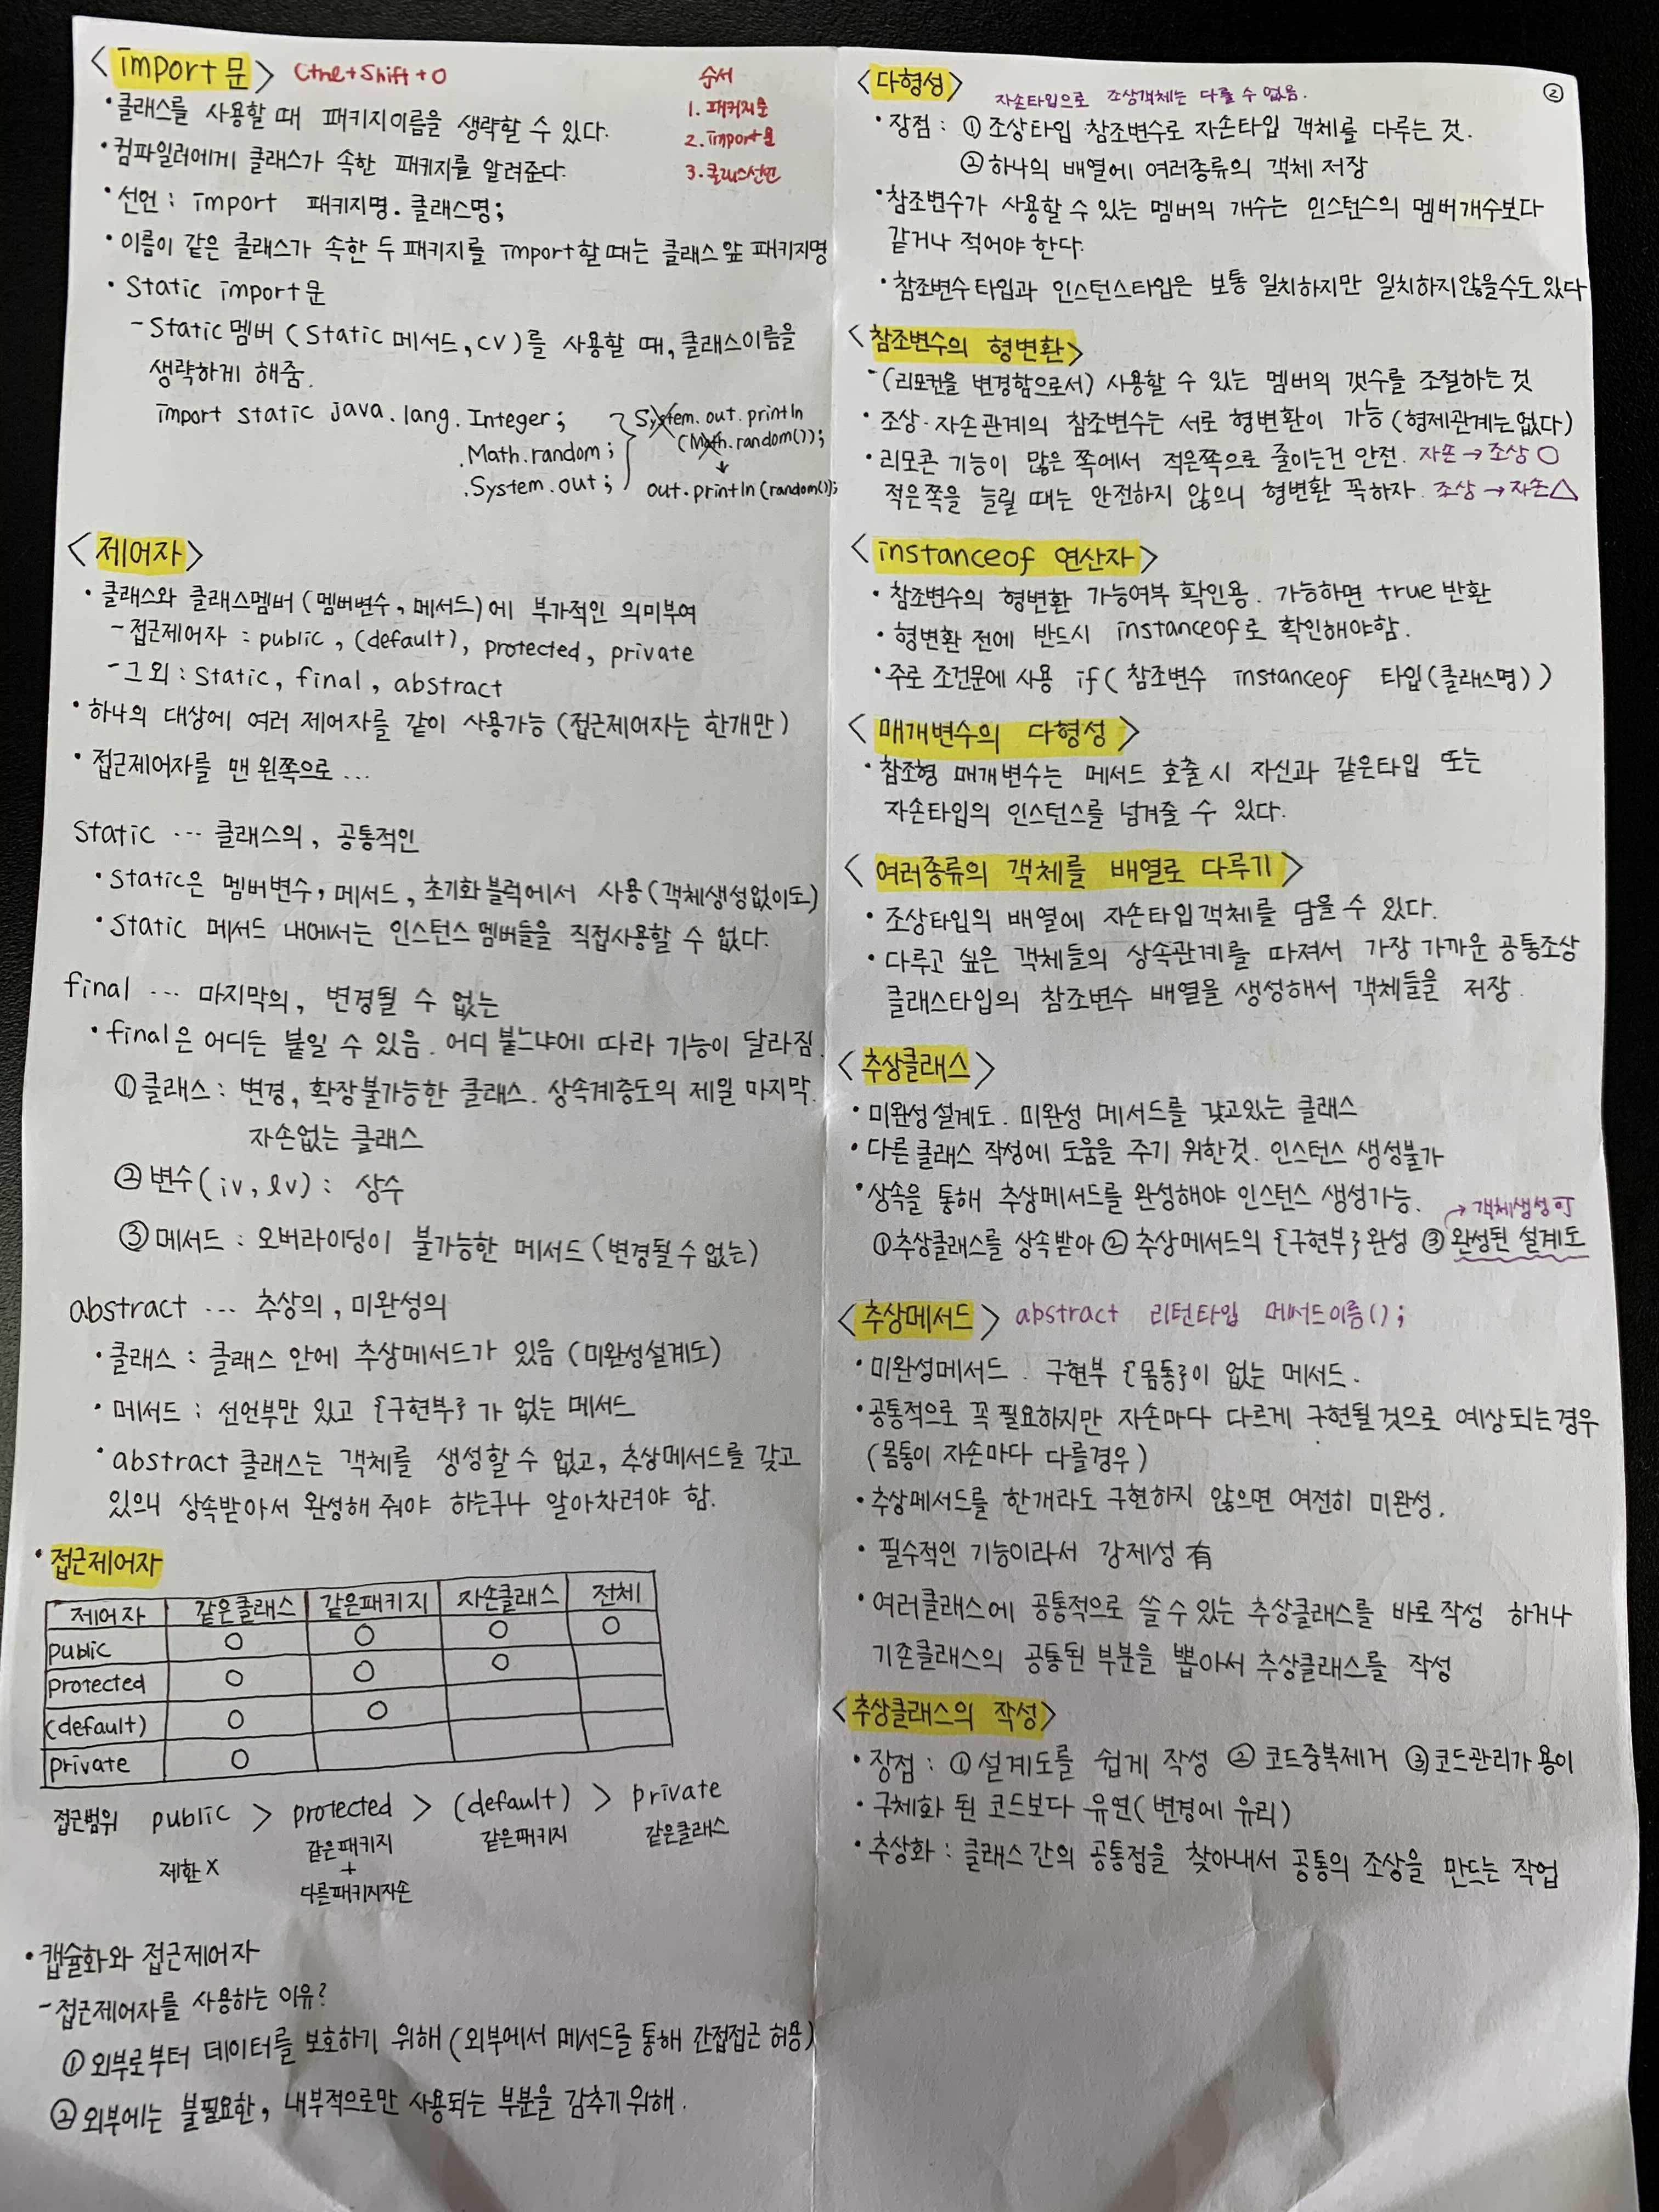 <import 문> Ctrl+Shift+O
순서
1. 패키지문
2. import문
3. 클래스선언
• 클래스를 사용할 때 패키지이름을 생략할 수 있다.
• 컴파일러에게 클래스가 속한 패키지를 알려준다.
• 선언 : import 패키지명.클래스명;
• 이름이 같은 클래스가 속한 두 패키지를 import할 때는 클래스 앞 패키지명
• Static import문
- Static멤버 (Static 메서드, cv)를 사용할 때, 클래스이름을
생략하게 해줌.
import static java.lang.Integer;
.Math.random;
.System.out;
} System.out.println
(Math.random());
↓
out.println(random());
<제어자>
• 클래스와 클래스멤버 (멤버변수, 메서드)에 부가적인 의미부여
- 접근제어자 : public, (default), protected, private
- 그외 : Static, final, abstract
• 하나의 대상에 여러 제어자를 같이 사용가능 (접근제어자는 한개만)
• 접근제어자를 맨 왼쪽으로 ...
Static ... 클래스의, 공통적인
• Static은 멤버변수, 메서드, 초기화블럭에서 사용 (객체생성없이도)
• Static 메서드 내에서는 인스턴스 멤버들을 직접사용할 수 없다.
final ... 마지막의, 변경될 수 없는
• final은 어디든 붙일 수 있음. 어디 붙느냐에 따라 기능이 달라짐.
① 클래스 : 변경, 확장불가능한 클래스. 상속계층도의 제일 마지막.
자손없는 클래스
② 변수 (iv, lv) : 상수
③ 메서드 : 오버라이딩이 불가능한 메서드 (변경될 수 없는)
abstract ... 추상의, 미완성의
• 클래스 : 클래스 안에 추상메서드가 있음 (미완성설계도)
• 메서드 : 선언부만 있고 {구현부}가 없는 메서드
• abstract 클래스는 객체를 생성할 수 없고, 추상메서드를 갖고
있으니 상속받아서 완성해 줘야 하는구나 알아차려야 함.
• 접근제어자
제어자 같은클래스 같은패키지 자손클래스 전체
public ○ ○ ○ ○
protected ○ ○ ○
(default) ○ ○
private ○
접근범위 public > protected > (default) > private
제한X 같은패키지 + 다른패키지자손 같은패키지 같은클래스
• 캡슐화와 접근제어자
- 접근제어자를 사용하는 이유?
① 외부로부터 데이터를 보호하기 위해 (외부에서 메서드를 통해 간접접근 허용)
② 외부에는 불필요한, 내부적으로만 사용되는 부분을 감추기 위해.
②
<다형성>
자손타입으로 조상객체는 다룰 수 없음.
• 장점 : ① 조상타입 참조변수로 자손타입 객체를 다루는 것.
② 하나의 배열에 여러종류의 객체 저장
• 참조변수가 사용할 수 있는 멤버의 개수는 인스턴스의 멤버개수보다
같거나 적어야 한다.
• 참조변수타입과 인스턴스타입은 보통 일치하지만 일치하지않을수도 있다
<참조변수의 형변환>
- (리모컨을 변경함으로서) 사용할 수 있는 멤버의 갯수를 조절하는 것
• 조상·자손관계의 참조변수는 서로 형변환이 가능 (형제관계는없다)
• 리모콘 기능이 많은 쪽에서 적은쪽으로 줄이는건 안전. 자손→조상 ○
적은쪽을 늘릴 때는 안전하지 않으니 형변환 꼭하자. 조상→자손△
<instanceof 연산자>
• 참조변수의 형변환 가능여부 확인용. 가능하면 true 반환
• 형변환 전에 반드시 instanceof로 확인해야함.
• 주로 조건문에 사용 if( 참조변수 instanceof 타입(클래스명))
<매개변수의 다형성>
• 참조형 매개변수는 메서드 호출시 자신과 같은타입 또는
자손타입의 인스턴스를 넘겨줄 수 있다.
<여러종류의 객체를 배열로 다루기>
• 조상타입의 배열에 자손타입객체를 담을 수 있다.
• 다루고 싶은 객체들의 상속관계를 따져서 가장 가까운 공통조상
클래스타입의 참조변수 배열을 생성해서 객체들을 저장.
<추상클래스>
• 미완성 설계도. 미완성 메서드를 갖고있는 클래스
• 다른클래스 작성에 도움을 주기 위한것. 인스턴스 생성불가
• 상속을 통해 추상메서드를 완성해야 인스턴스 생성가능.
→ 객체생성 可
① 추상클래스를 상속받아 ② 추상메서드의 {구현부}완성 ③ 완성된 설계도
<추상메서드> abstract 리턴타입 메서드이름();
• 미완성메서드. 구현부 {몸통}이 없는 메서드.
• 공통적으로 꼭 필요하지만 자손마다 다르게 구현될것으로 예상되는경우
(몸통이 자손마다 다를경우)
• 추상메서드를 한개라도 구현하지 않으면 여전히 미완성.
• 필수적인 기능이라서 강제성 有
• 여러클래스에 공통적으로 쓸 수 있는 추상클래스를 바로 작성 하거나
기존클래스의 공통된 부분을 뽑아서 추상클래스를 작성
<추상클래스의 작성>
• 장점 : ① 설계도를 쉽게 작성 ② 코드중복제거 ③ 코드관리가 용이
• 구체화 된 코드보다 유연 (변경에 유리)
• 추상화 : 클래스 간의 공통점을 찾아내서 공통의 조상을 만드는 작업